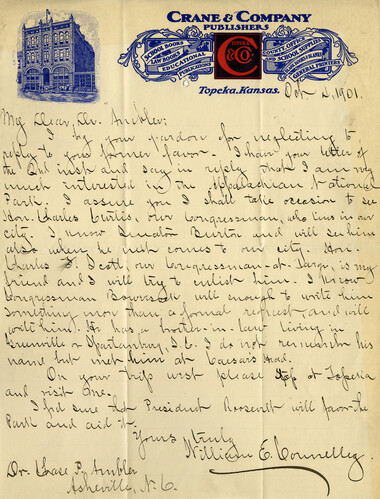 CRANE & COMPANY
PUBLISHERS
SCHOOL BOOKS
LAW BOOKS
EDUCATIONAL
PUBLICATIONS
TOPEKA
& CO.
COUNTY, CITY
AND SCHOOL SUPPLIES
BLANK BOOKS MAKERS
GENERAL PRINTERS
Topeka, Kansas. Oct 2, 1901.
My Dear Dr. Ambler:
I beg your pardon for neglecting to
reply to your former favor. I have your letter of
the 21st inst and say in reply that I am very
much interested in the Appalachian National
Park. I assure you I shall take occasion to see
Hon. Charles Curtis, our Congressman, who lives in our
city. I know Senator Burton and will see him
also when he next comes to our city. Hon.
Charles F. Scott, our Congressman-at-Large, is my
friend and I will try to enlist him. I know
Congressman Bowersock well enough to write him
something more than a formal request, and will
write him. He has a brother-in-law living in
Greenville or Spartanburg, S.C. I do not remember his
name but met him at Caesars Head.
On your trip west please stop at Topeka
and visit me.
I feel sure that President Roosevelt will favor the
Park and aid it.
Yours truly
William E. Connelley.
Dr. Chase P. Ambler
Asheville, N.C.